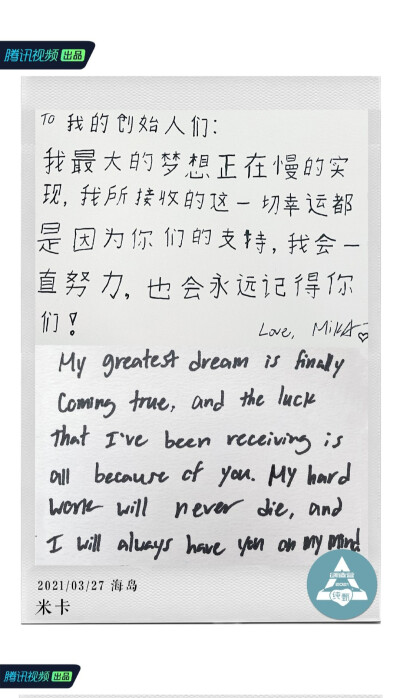 腾讯视频 出品
TO 我的创始人们:
我最大的梦想正在慢的实
现, 我所接收的这一切幸运都
是因为你们的支持, 我会一
直努力, 也会永远记得你
们!
Love, MikA
My greatest dream is finally
Coming true, and the luck
that I've been receiving is
all because of you. My hard
work will never die, and
I will always have you on my mind.
2021/03/27 海岛
米卡
腾讯视频 出品